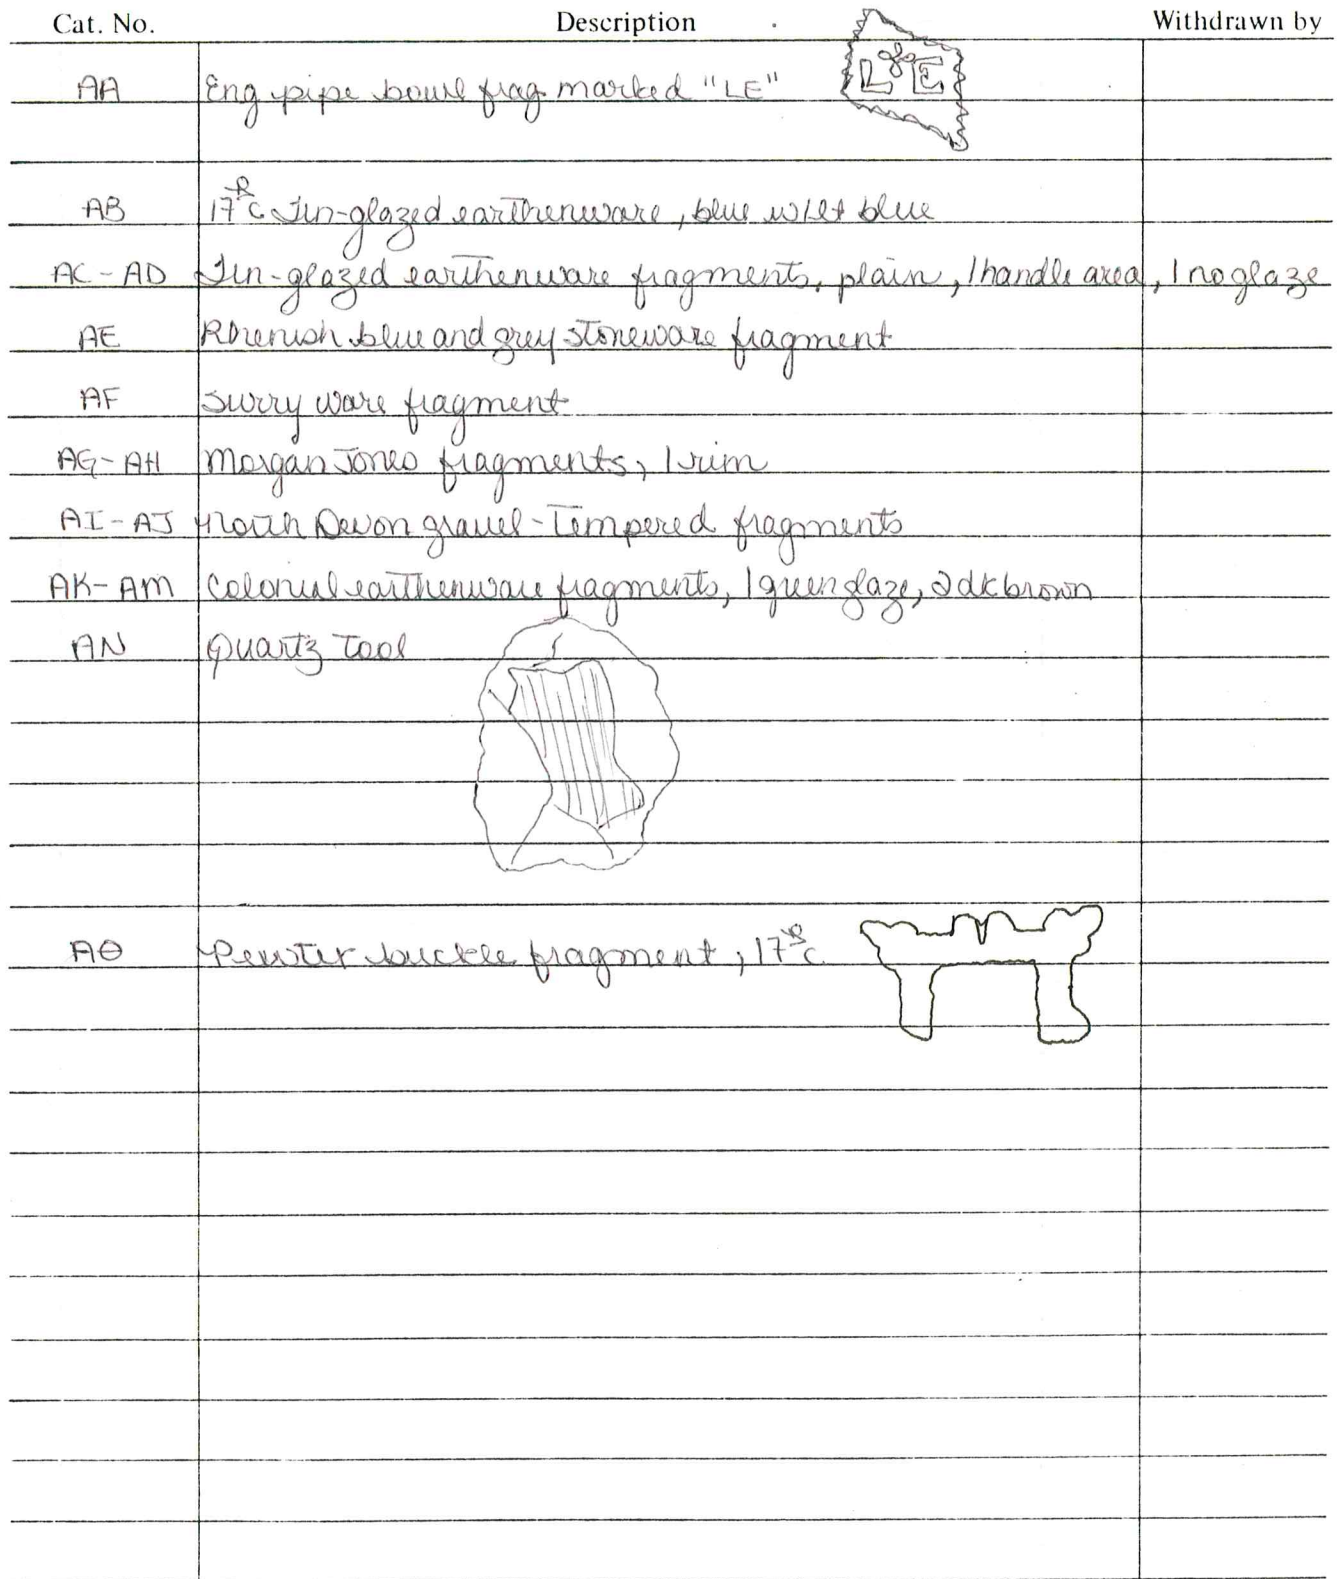 Cat. No. Description Withdrawn by
AA Eng pipe bowl frag marked "LE" L E
AB 17th c Tin-glazed earthenware, blue w/lt blue
AC-AD Tin-glazed earthenware fragments, plain, 1 handle area, 1 no glaze
AE Rhenish blue and grey stoneware fragment
AF Surry ware fragment
AG-AH Morgan Jones fragments, 1 rim
AI-AJ North Devon gravel-tempered fragments
AK-AM Colonial earthenware fragments, 1 green glaze, 2 dk brown
AN Quartz tool
AO Pewter buckle fragment, 17th c.